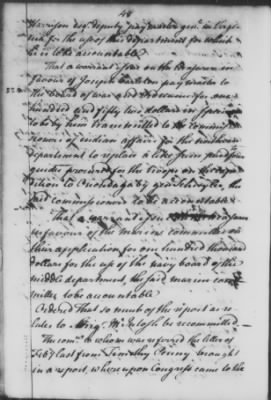 48
Harrison esqr. deputy paymaster genl. in Virginia for the use of his department for which
he is to be accountable.
That a warrant issue on the treasurer in
favour of Joseph Carleton paymaster to
the board of war and ordnance for one
hundred and fifty two dollars in specie
to be by him transmitted to the commissioners of indian affairs for the northern
department to replace a like sum
procured for the troops on the expedition to Onondaga by
said commissioners to be accountable
That a warrant issue treasurer
in favour of the marine committee on
their application for one hundred thousand
dollars for the use of the navy board of the
middle department, the said marine committee to be accountable
Ordered That so much of the report as relates to Brig. McIntosh be recommitted.
The comee. to whom was referred the letter of
Feby last from Timothy brought
in a report, whereupon Congress came to the